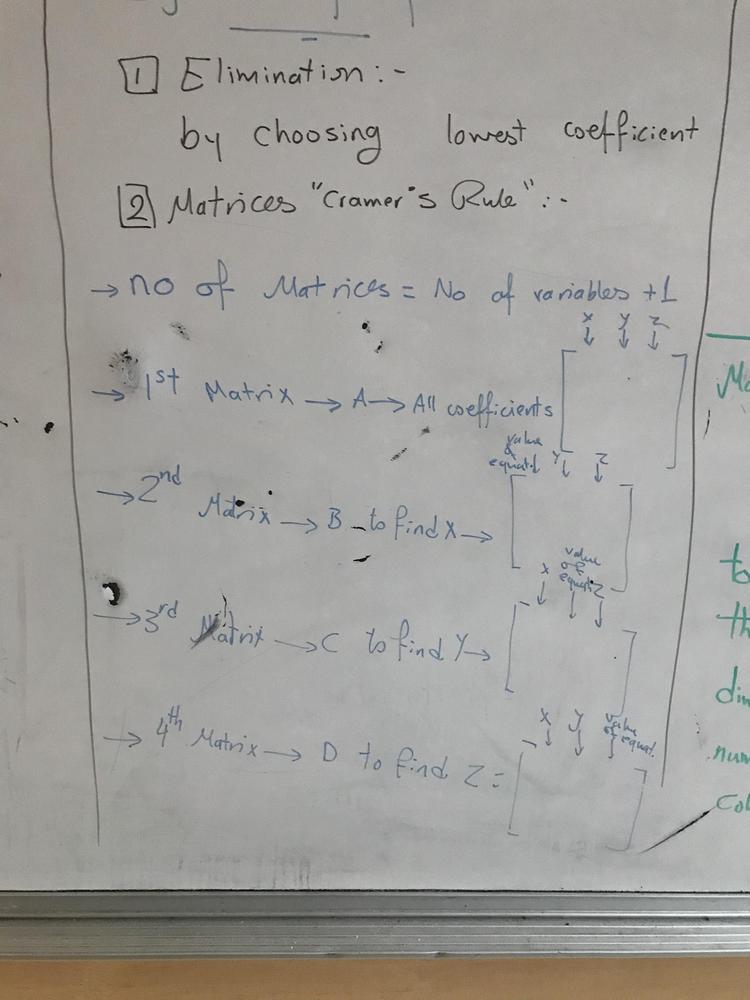 1 Elimination:-
by choosing lowest coefficient
2 Matrices "Cramer's Rule":-
→ no of Matrices = No of variables +1
x y z
→ 1st Matrix → A → All coefficients
value of equat. y z
→ 2nd Matrix → B to find x →
x value of equat. z
→ 3rd Matrix → C to find y →
x y value of equat.
→ 4th Matrix → D to find z =
to
num